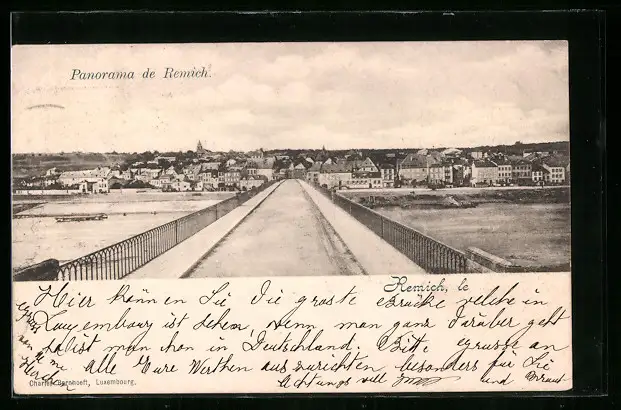 Panorama de Remich.
Remich, le
Hier können Sie die groste Brücke welche in
Luxembourg ist sehen, wenn man ganz darüber geht
so ist man schon in Deutschland. Bitte grusse an
alle Eure Werthen aus zurichten besonders für Sie
und Braut
Achtungs voll
Gruss
von
Charles Bernhoeft, Luxembourg.